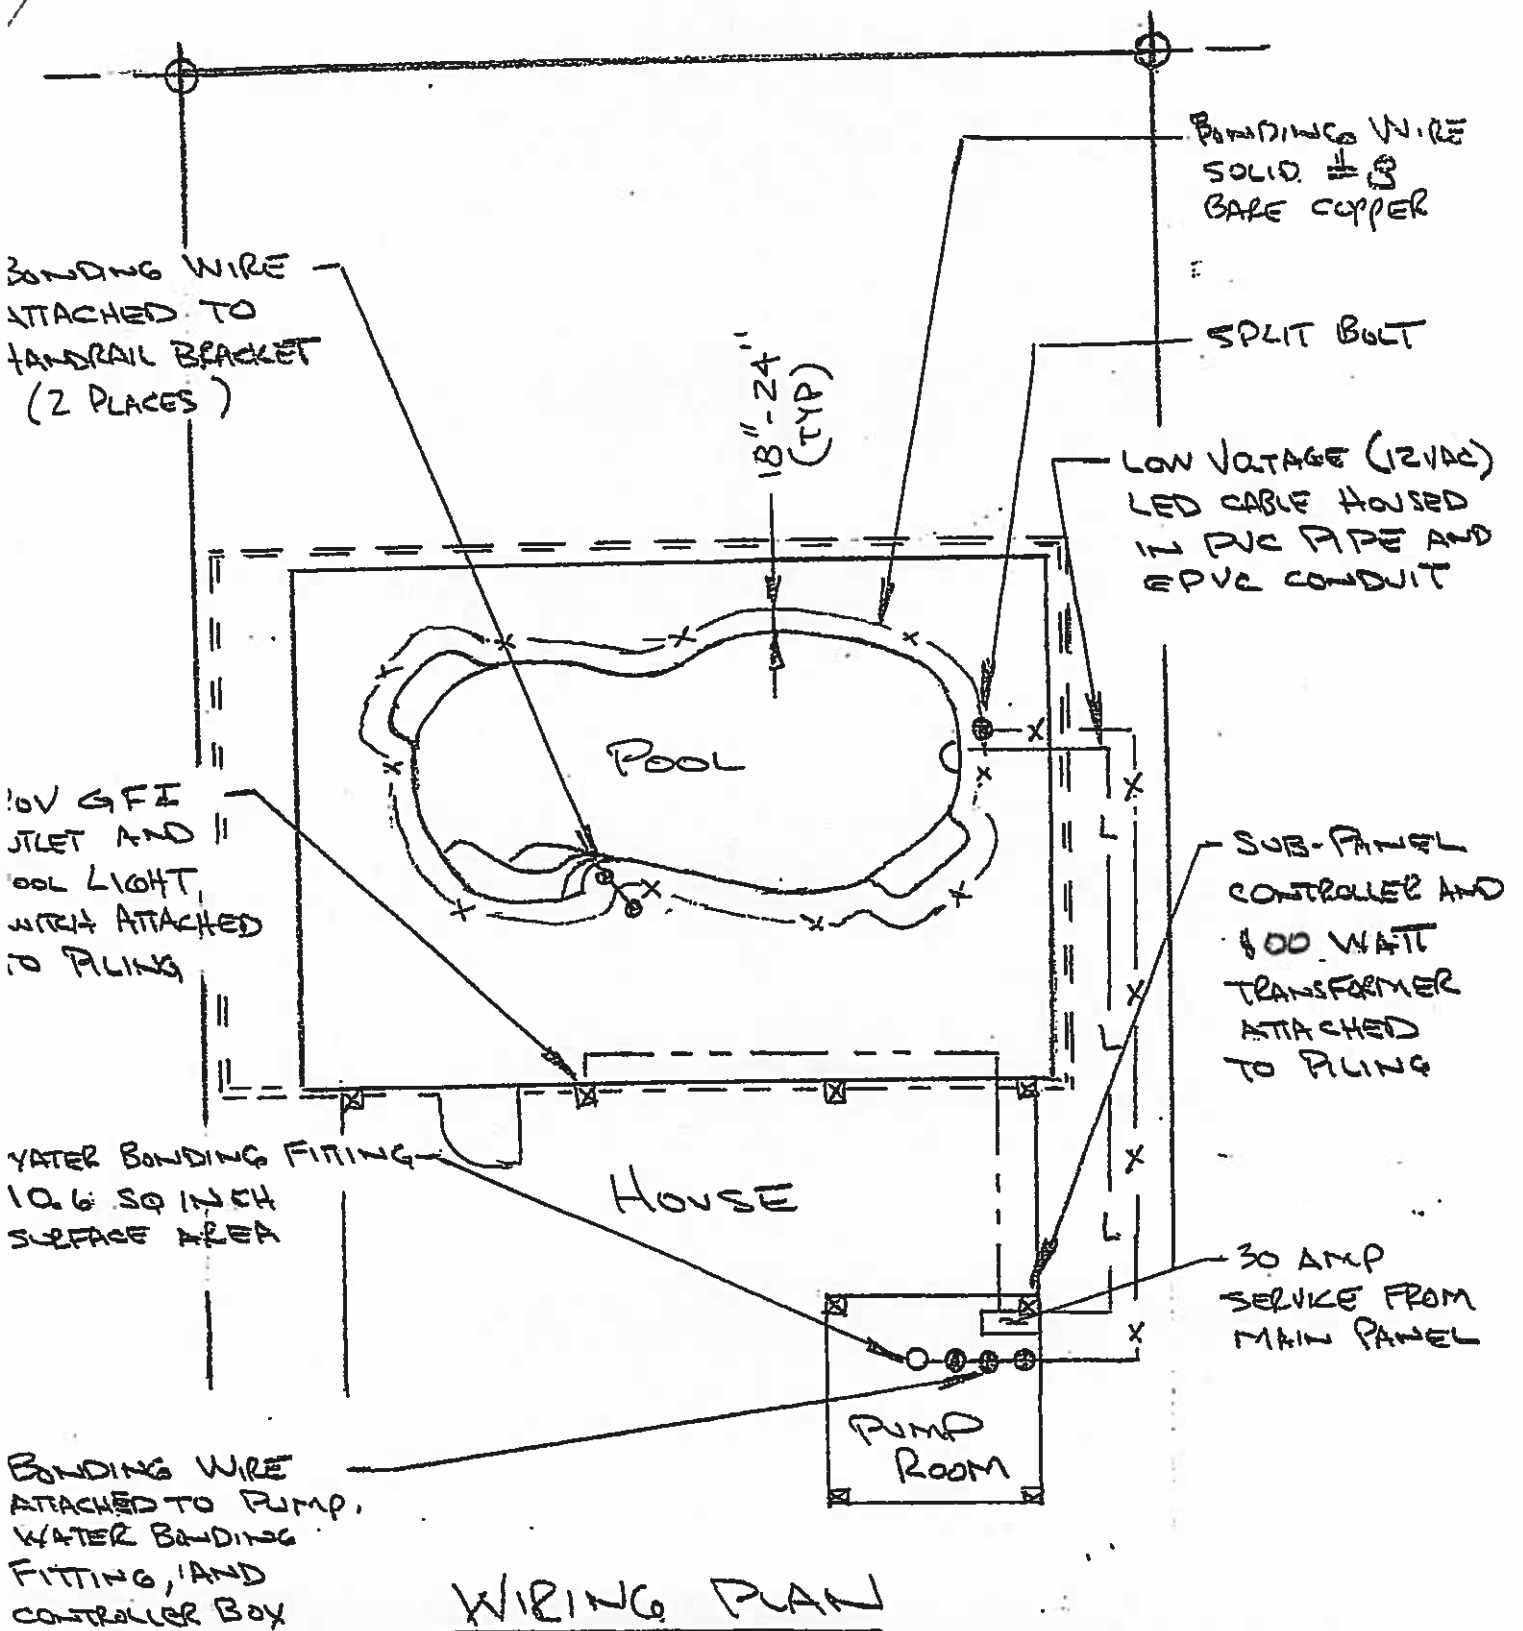 BONDING WIRE
SOLID # 8
BARE COPPER
BONDING WIRE
ATTACHED TO
HANDRAIL BRACKET
(2 PLACES)
SPLIT BOLT
18"-24"
(TYP)
LOW VOLTAGE (12VAC)
LED CABLE HOUSED
IN PVC PIPE AND
EPVC CONDUIT
POOL
OV GFI
UTLET AND
OOL LIGHT
WITCH ATTACHED
TO PILING
SUB-PANEL
CONTROLLER AND
00 WATT
TRANSFORMER
ATTACHED
TO PILING
WATER BONDING FITTING
10.6 SQ INCH
SURFACE AREA
HOUSE
30 AMP
SERVICE FROM
MAIN PANEL
PUMP
ROOM
BONDING WIRE
ATTACHED TO PUMP,
WATER BONDING
FITTING, AND
CONTROLLER BOX
WIRING PLAN